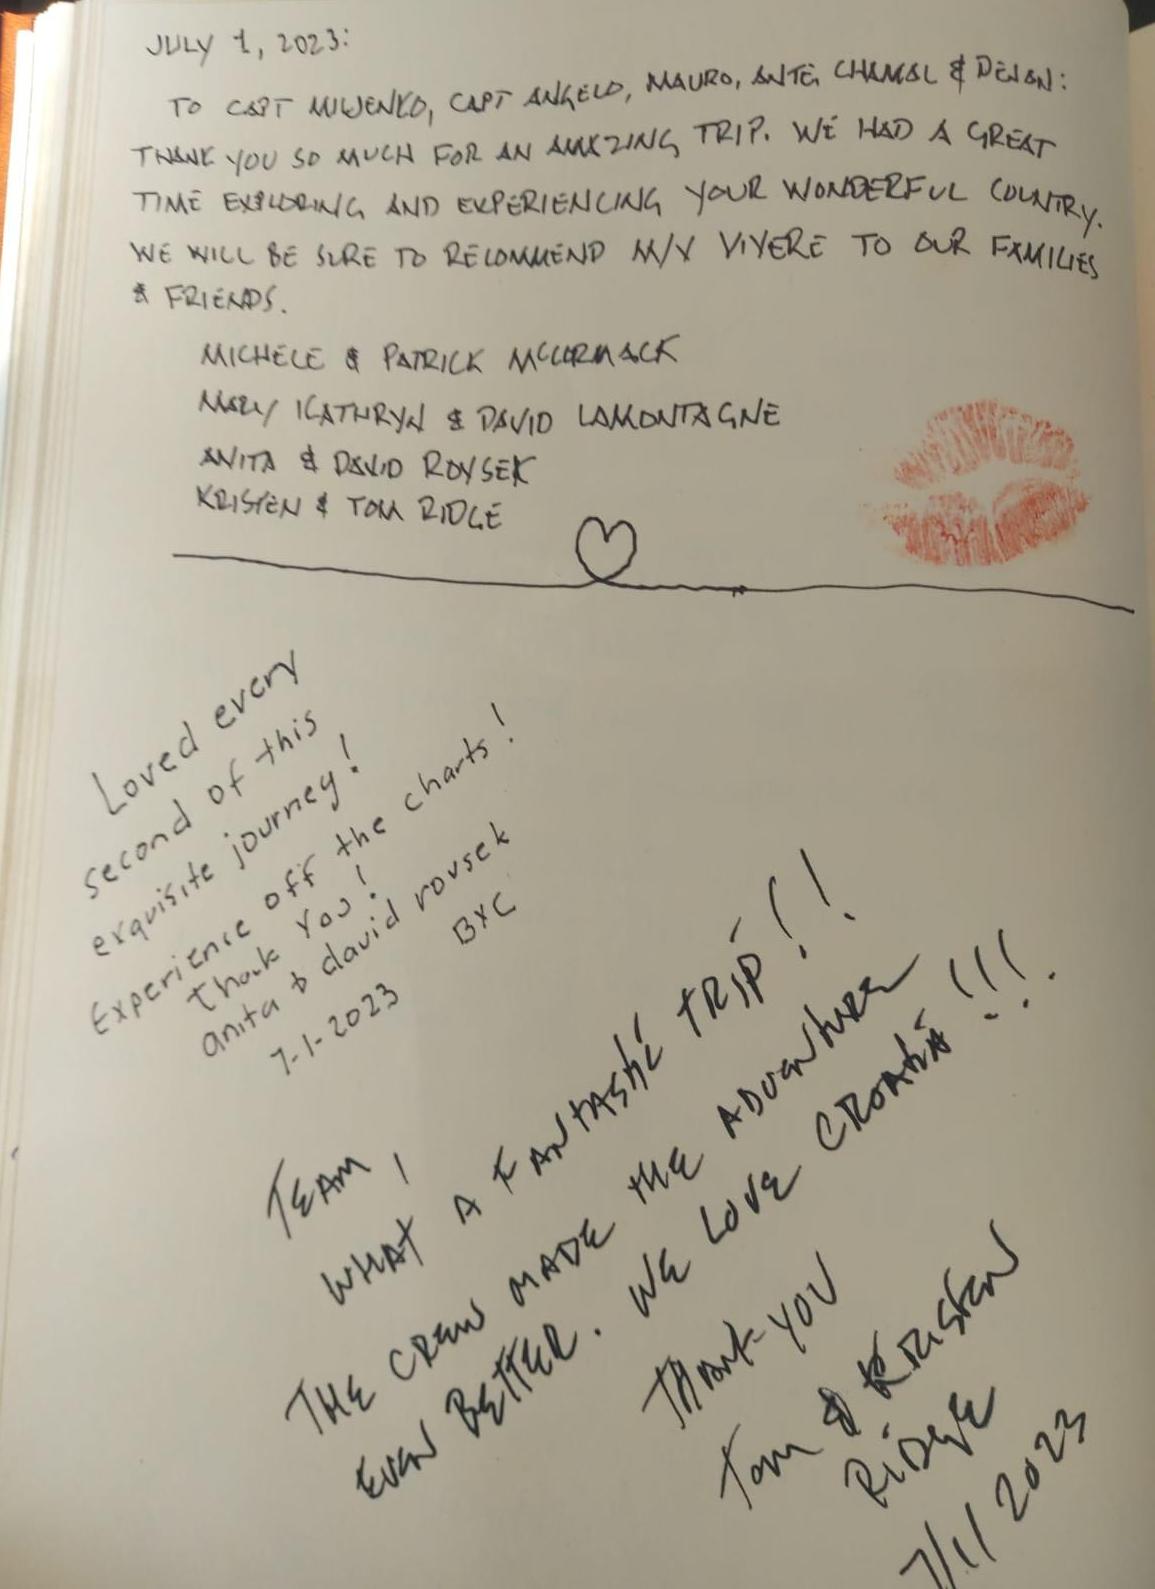 JULY 1, 2023:
TO CAPT MILJENKO, CAPT ANGELO, MAURO, ANTE, CHAMAL & DEJAN:
THANK YOU SO MUCH FOR AN AMAZING TRIP. WE HAD A GREAT
TIME EXPLORING AND EXPERIENCING YOUR WONDERFUL COUNTRY.
WE WILL BE SURE TO RECOMMEND M/Y VIVERE TO OUR FAMILIES
& FRIENDS.
MICHELE & PATRICK MCCORMACK
MARY KATHRYN & DAVID LAMONTAGNE
ANITA & DAVID ROVSEK
KRISTEN & TOM RIDGE
Loved every
second of this
exquisite journey!
Experience off the charts!
Thank You!
anita & david rovsek
BYC
7-1-2023
TEAM,
WHAT A FANTASTIC TRIP!!
THE CREW MADE THE ADVENTURE
EVEN BETTER. WE LOVE CROATIA!!!
THANK YOU
Tom & KRISTEN
RIDGE
7/1/2023